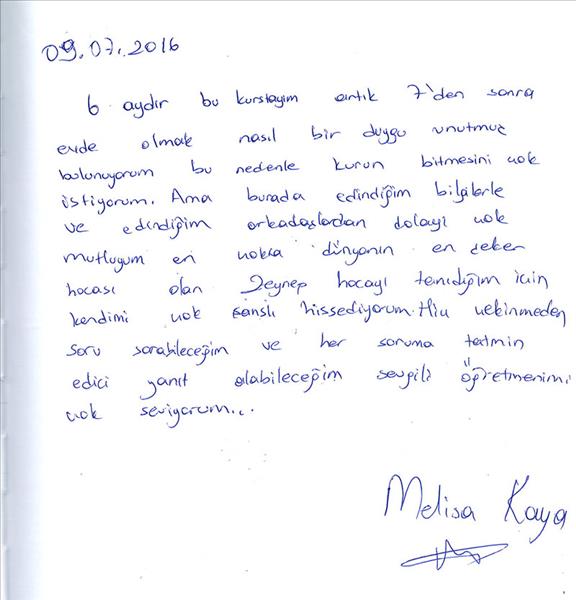 09.07.2016
6 aydır bu kurstayım artık 7'den sonra
evde olmak nasıl bir duygu unutmuş
bulunuyorum bu nedenle kurun bitmesini çok
istiyorum. Ama burada edindiğim bilgilerle
ve edindiğim arkadaşlardan dolayı çok
mutluyum en çokta dünyanın en şeker
hocası olan Zeynep hocayı tanıdığım için
kendimi çok şanslı hissediyorum. Hiç çekinmeden
soru sorabileceğim ve her soruma tatmin
edici yanıt alabileceğim sevgili öğretmenimi
çok seviyorum...
Melisa Kaya